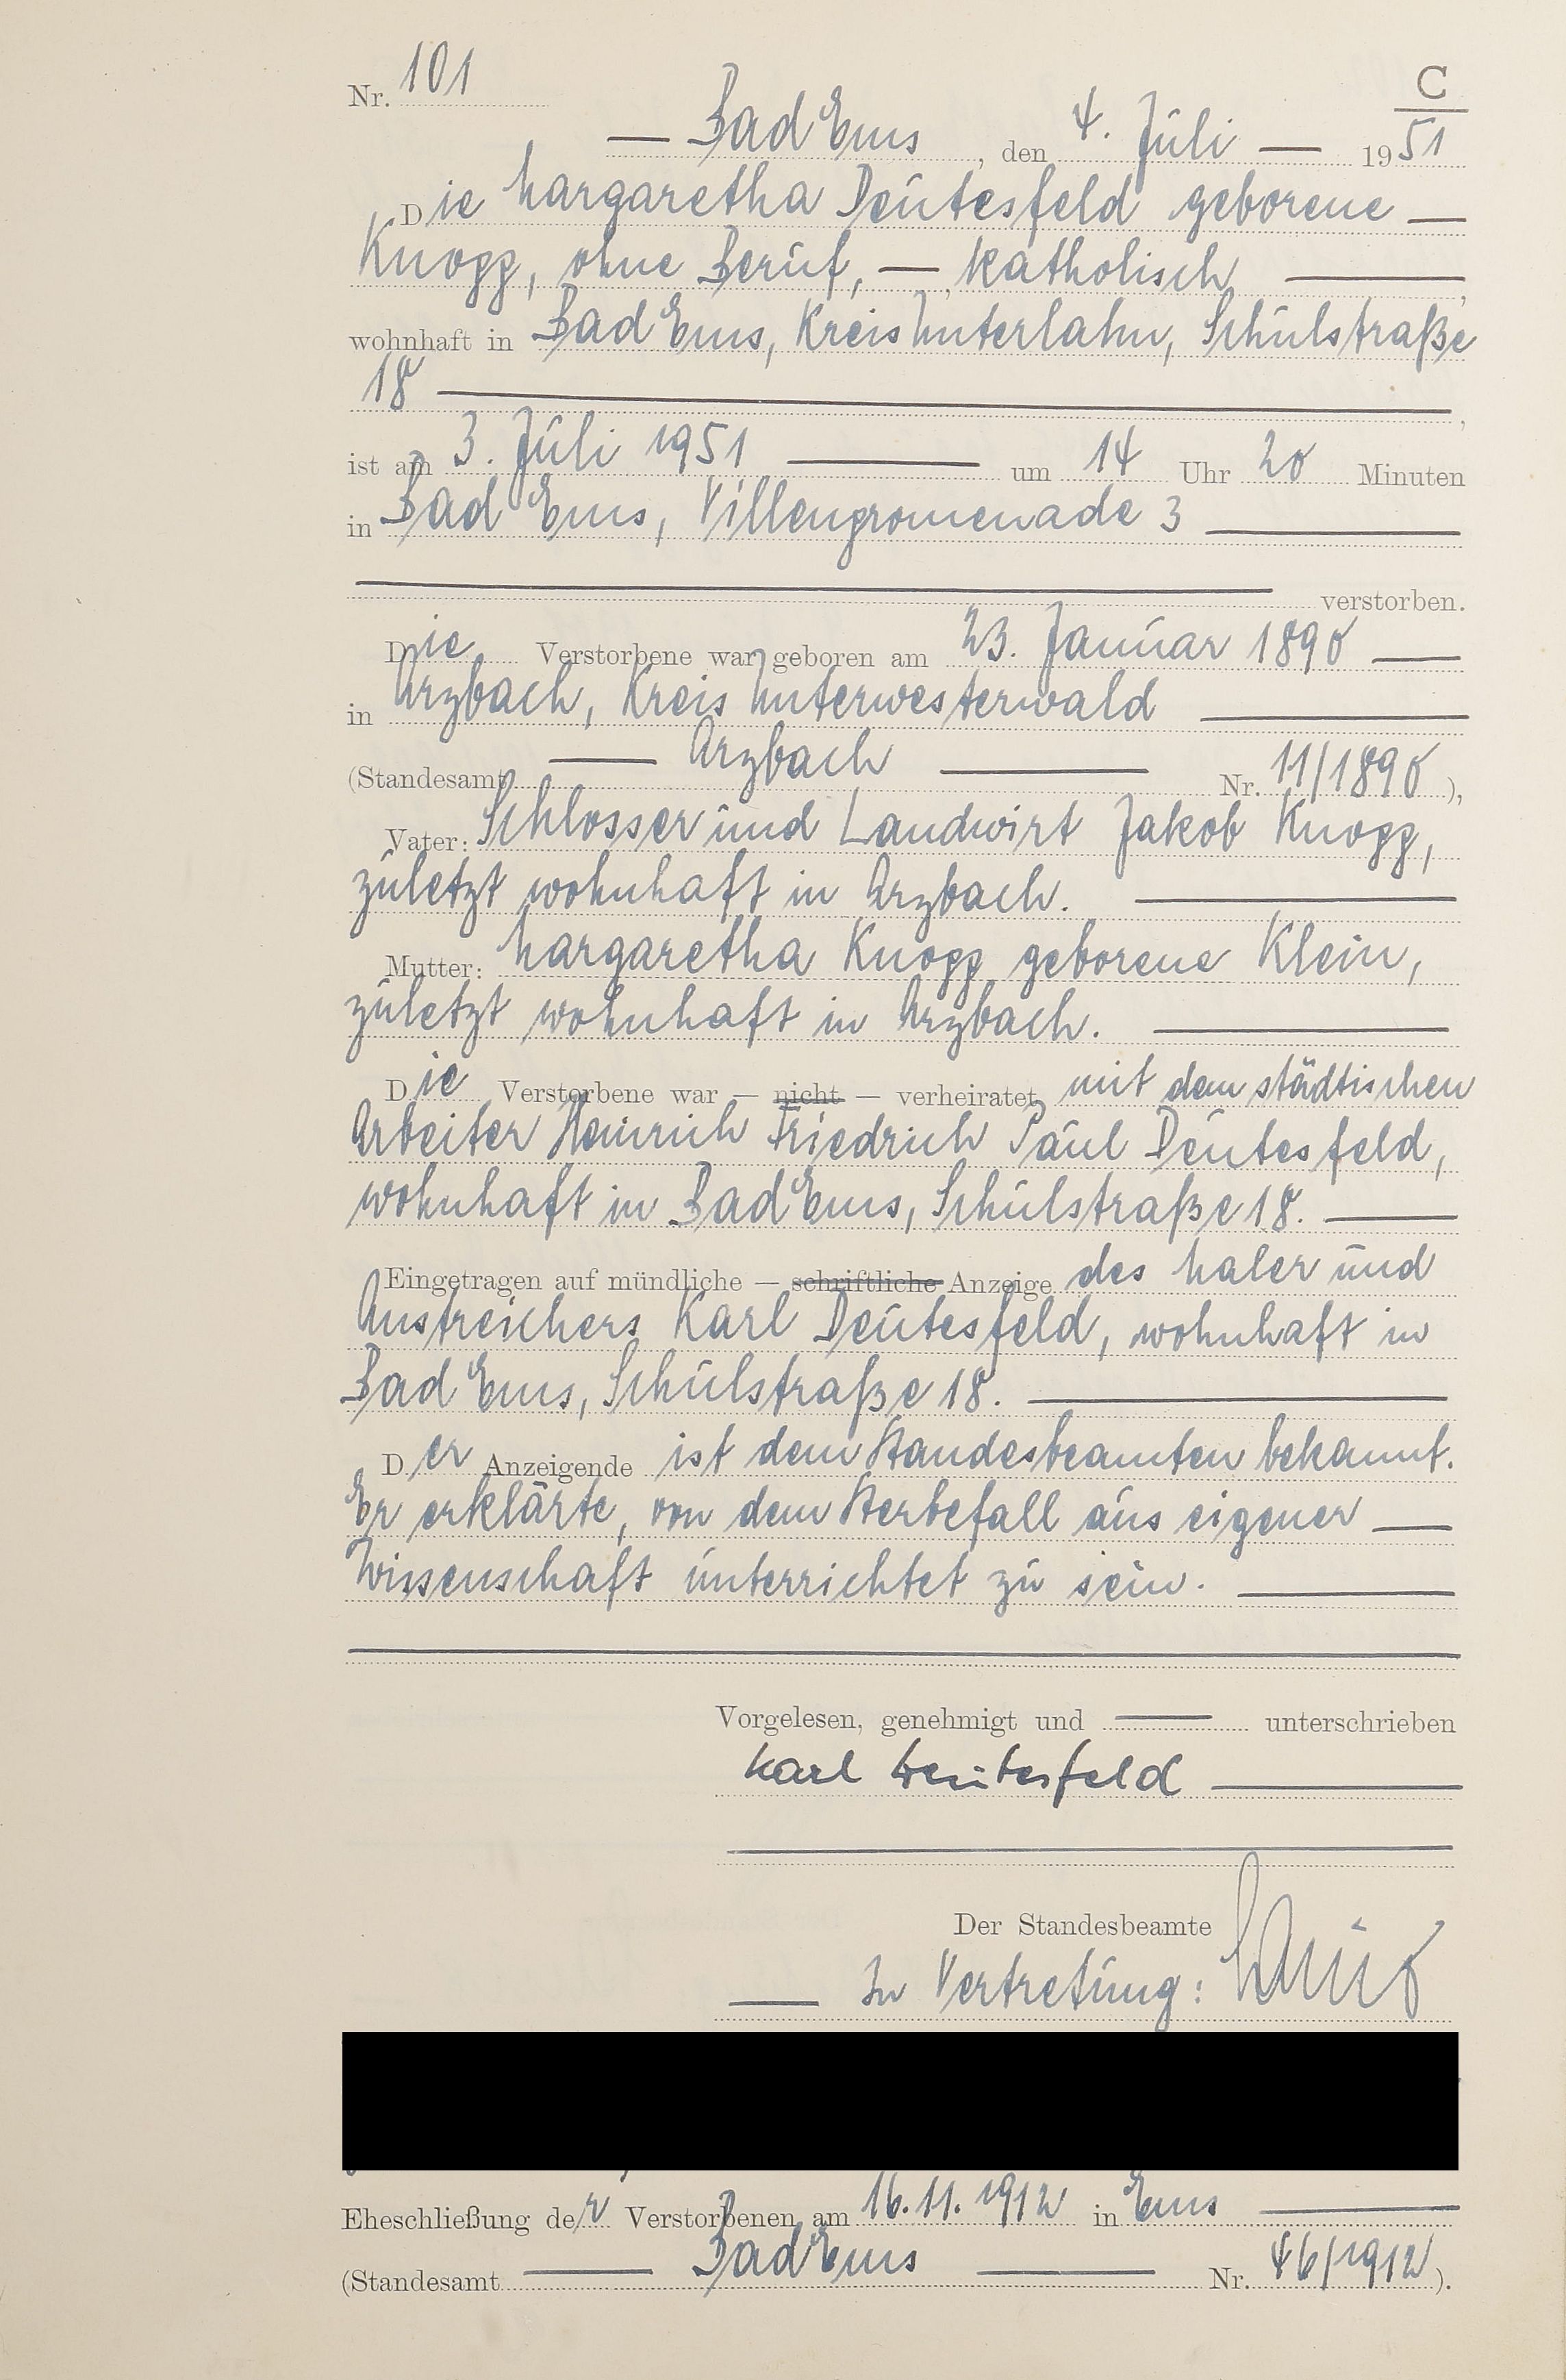 Nr. 101
C
Bad Ems, den 4. Juli 1951
Die Margaretha Deutesfeld geborene
Knopp, ohne Beruf, katholisch,
wohnhaft in Bad Ems, Kreis Unterlahn, Schulstraße
18,
ist am 3. Juli 1951 um 14 Uhr 20 Minuten
in Bad Ems, Villenpromenade 3
verstorben.
Die Verstorbene war geboren am 23. Januar 1890
in Arzbach, Kreis Unterwesterwald
(Standesamt Arzbach Nr. 11/1890),
Vater: Schlosser und Landwirt Jakob Knopp,
zuletzt wohnhaft in Arzbach.
Mutter: Margaretha Knopp geborene Klein,
zuletzt wohnhaft in Arzbach.
Die Verstorbene war — nicht — verheiratet mit dem städtischen
Arbeiter Heinrich Friedrich Paul Deutesfeld,
wohnhaft in Bad Ems, Schulstraße 18.
Eingetragen auf mündliche — schriftliche Anzeige des Maler und
Anstreichers Karl Deutesfeld, wohnhaft in
Bad Ems, Schulstraße 18.
Der Anzeigende ist dem Standesbeamten bekannt.
Er erklärte, von dem Sterbefall aus eigener
Wissenschaft unterrichtet zu sein.
Vorgelesen, genehmigt und unterschrieben
Karl Deutesfeld
Der Standesbeamte
In Vertretung:
Eheschließung der Verstorbenen am 16.11.1912 in Ems
(Standesamt Bad Ems Nr. 46/1912).